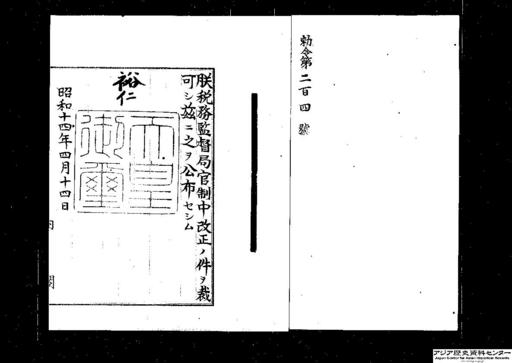 勅令第二百四號
朕税務監督局官制中改正ノ件ヲ裁
可シ茲ニ之ヲ公布セシム
裕仁
天皇御璽
昭和十四年四月十四日
内閣
アジア歴史資料センター
Japan Center for Asian Historical Records